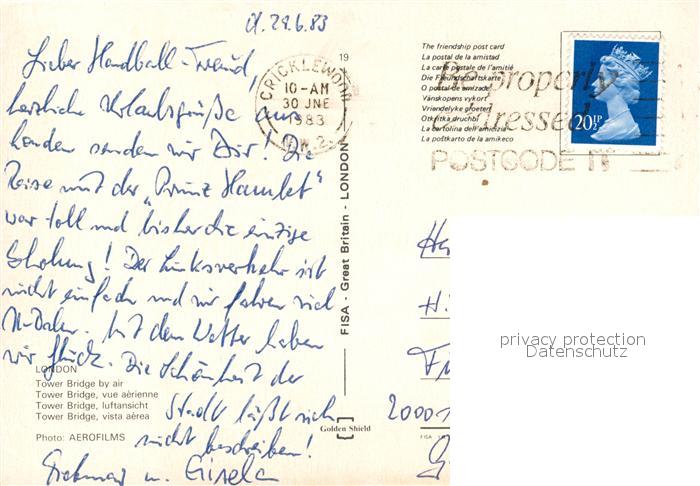 d. 29.6.83
Lieber Handball-Freund,
herzliche Urlaubsgrüße aus
London senden wir Dir! Die
Reise mit der „Prinz Hamlet"
war toll und bisher die einzige
Erholung! Der Linksverkehr ist
nicht einfach und wir fahren viel
Mit dem Wetter haben
wir Glück. Die Schönheit der
Stadt läßt sich
nicht beschreiben!
u. Gisela
LONDON
Tower Bridge by air
Tower Bridge, vue aèrienne
Tower Bridge, luftansicht
Tower Bridge, vista aérea
Photo: AEROFILMS
CRICKLEWOOD
10-AM
30 JNE
1983
N.W.2.
19
FISA - Great Britain - LONDON
Golden Shield
The friendship post card
La postal de la amistad
La carte postale de l'amitié
Die Freundschaftskarte
O postal de amizade
Vänskapens vykort
Vriendelyke groeten
Otkritka druchbi
La cartolina dell'amicizia
La poštkarto de la amikeco
Be properly
addressed
POSTCODE IT
20½P
privacy protection
Datenschutz
2000
FISA